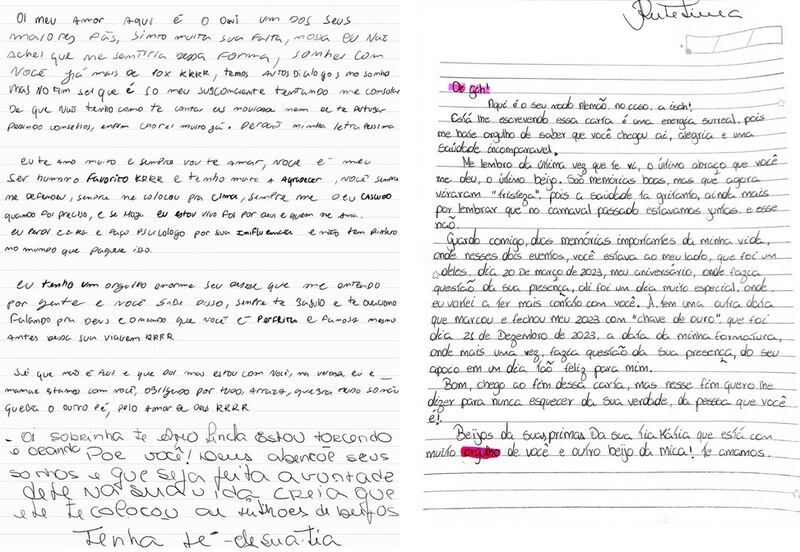 OI MEU AMOR AQUI É O Davi UM DOS SEUS
MAIORES FÃS, SINTO MUITA SUA FALTA, NOSSA EU NÃO
ACHEI QUE ME SENTIRIA DESSA FORMA, SONHEI COM
VOCÊ JÁ MAIS DE 10X KRRR, TEMOS ALTOS DIALOGOS NO SONHO
MAS NO FIM SEI QUE É SO MEU SUBCONSCIENTE TENTANDO ME CONSOLAR
DE QUE NÃO TENHO COMO TE CONTAR AS NOVIDADES NEM EU TE
PEDINDO CONSELHOS, ENFIM CHOREI MUITO JÁ. PERDÃO MINHA LETRA PESSIMA
EU TE AMO MUITO E SEMPRE VOU TE AMAR, VOCÊ É MEU
SER HUMANO FAVORITO KRRR E TENHO MUITO A AGRADECER, VOCÊ SEMPRE
ME DEFENDEU, SEMPRE ME COLOCOU PRA CIMA, SEMPRE ME DEU CASCUDO
QUANDO FOI PRECISO, E SE HOJE EU ESTOU VIVO FOI POR DEUS E QUEM ME AMA.
EU E FAÇO PSICOLOGO POR SUA INFLUENCIA E NÃO TEM DINHEIRO
NO MUNDO QUE PAGUE ISSO.
EU TENHO UM ORGULHO ENORME SEU DESDE QUE ME ENTENDO
POR GENTE E VOCÊ SABE DISSO, SEMPRE TE BABULO E TE
FALANDO PRA DEUS E O MUNDO QUE VOCÊ É PERFEITA E FAMOSA MESMO
ANTES DESSA SUA VIAGEM KRRR
SEI QUE NÃO É FACIL E QUE DOI MAS ESTOU COM VOCÊ, NA VERDADE EU E
MAMAE ESTAMOS COM VOCÊ, OBRIGADO POR TUDO, ARRAZA, QUEBRA TUDO SO NÃO
QUEBRA O OUTRO PÉ, PELO AMOR DE DEUS KRRR
- Oi sobrinha te amo linda Estou torcendo
e orando Por você! Deus abençõe seus
sonhos e que seja feita a vontade
dele na sua vida creia que
ele te colocou aí milhoes de beijos
Tenha fé - de sua tia
De gih!
Aqui é o seu nado Alemão, no caso, a isch!
Está me escrevendo essa carta é uma energia surreal, pois
me bate orgulho de saber que você chegou ai, alegria e uma
saudade incomparavel.
Me lembro da última vez que te vi, o último abraço que você
me deu, o último beijo. São memórias boas, mas que agora
viraram "tristeza", pois a saudade ta gritante, ainda mais
por lembrar que no carnaval passado estavamos juntas, e esse
não.
Guardo comigo, duas memórias importantes da minha vida,
onde nesses dois eventos, você estava ao meu lado, que foi um
deles, dia 20 De março de 2023, meu aniversário, onde fazia
questão da sua presença, ali foi um dia muito especial, onde
eu voltei a ter mais contato com você. A, tem uma outra data
que marcou e fechou meu 2023 com "chave de ouro", que foi
dia 21 de Dezembro de 2023, a data da minha formatura,
onde mais uma vez, fazia questão da sua presença, do seu
apoco em um dia tão feliz para mim.
Bom, chego ao fim dessa carta, mas nesse fim quero lhe
dizer para nunca esquecer da sua verdade, da pessoa que você
é!
Beijos da suas primas. Da sua tia Kátia que está com
muito orgulho de você e outro beijo da mica! Te amamos.